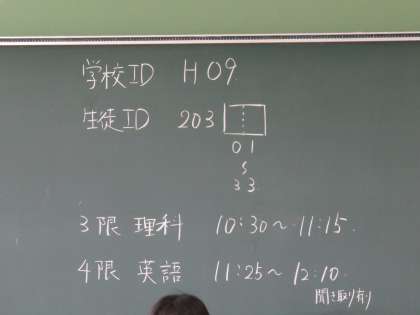 学校ID H09
生徒ID 203
01
〜
33
3限 理科 10:30〜11:15.
4限 英語 11:25〜12:10.
聞き取り有り